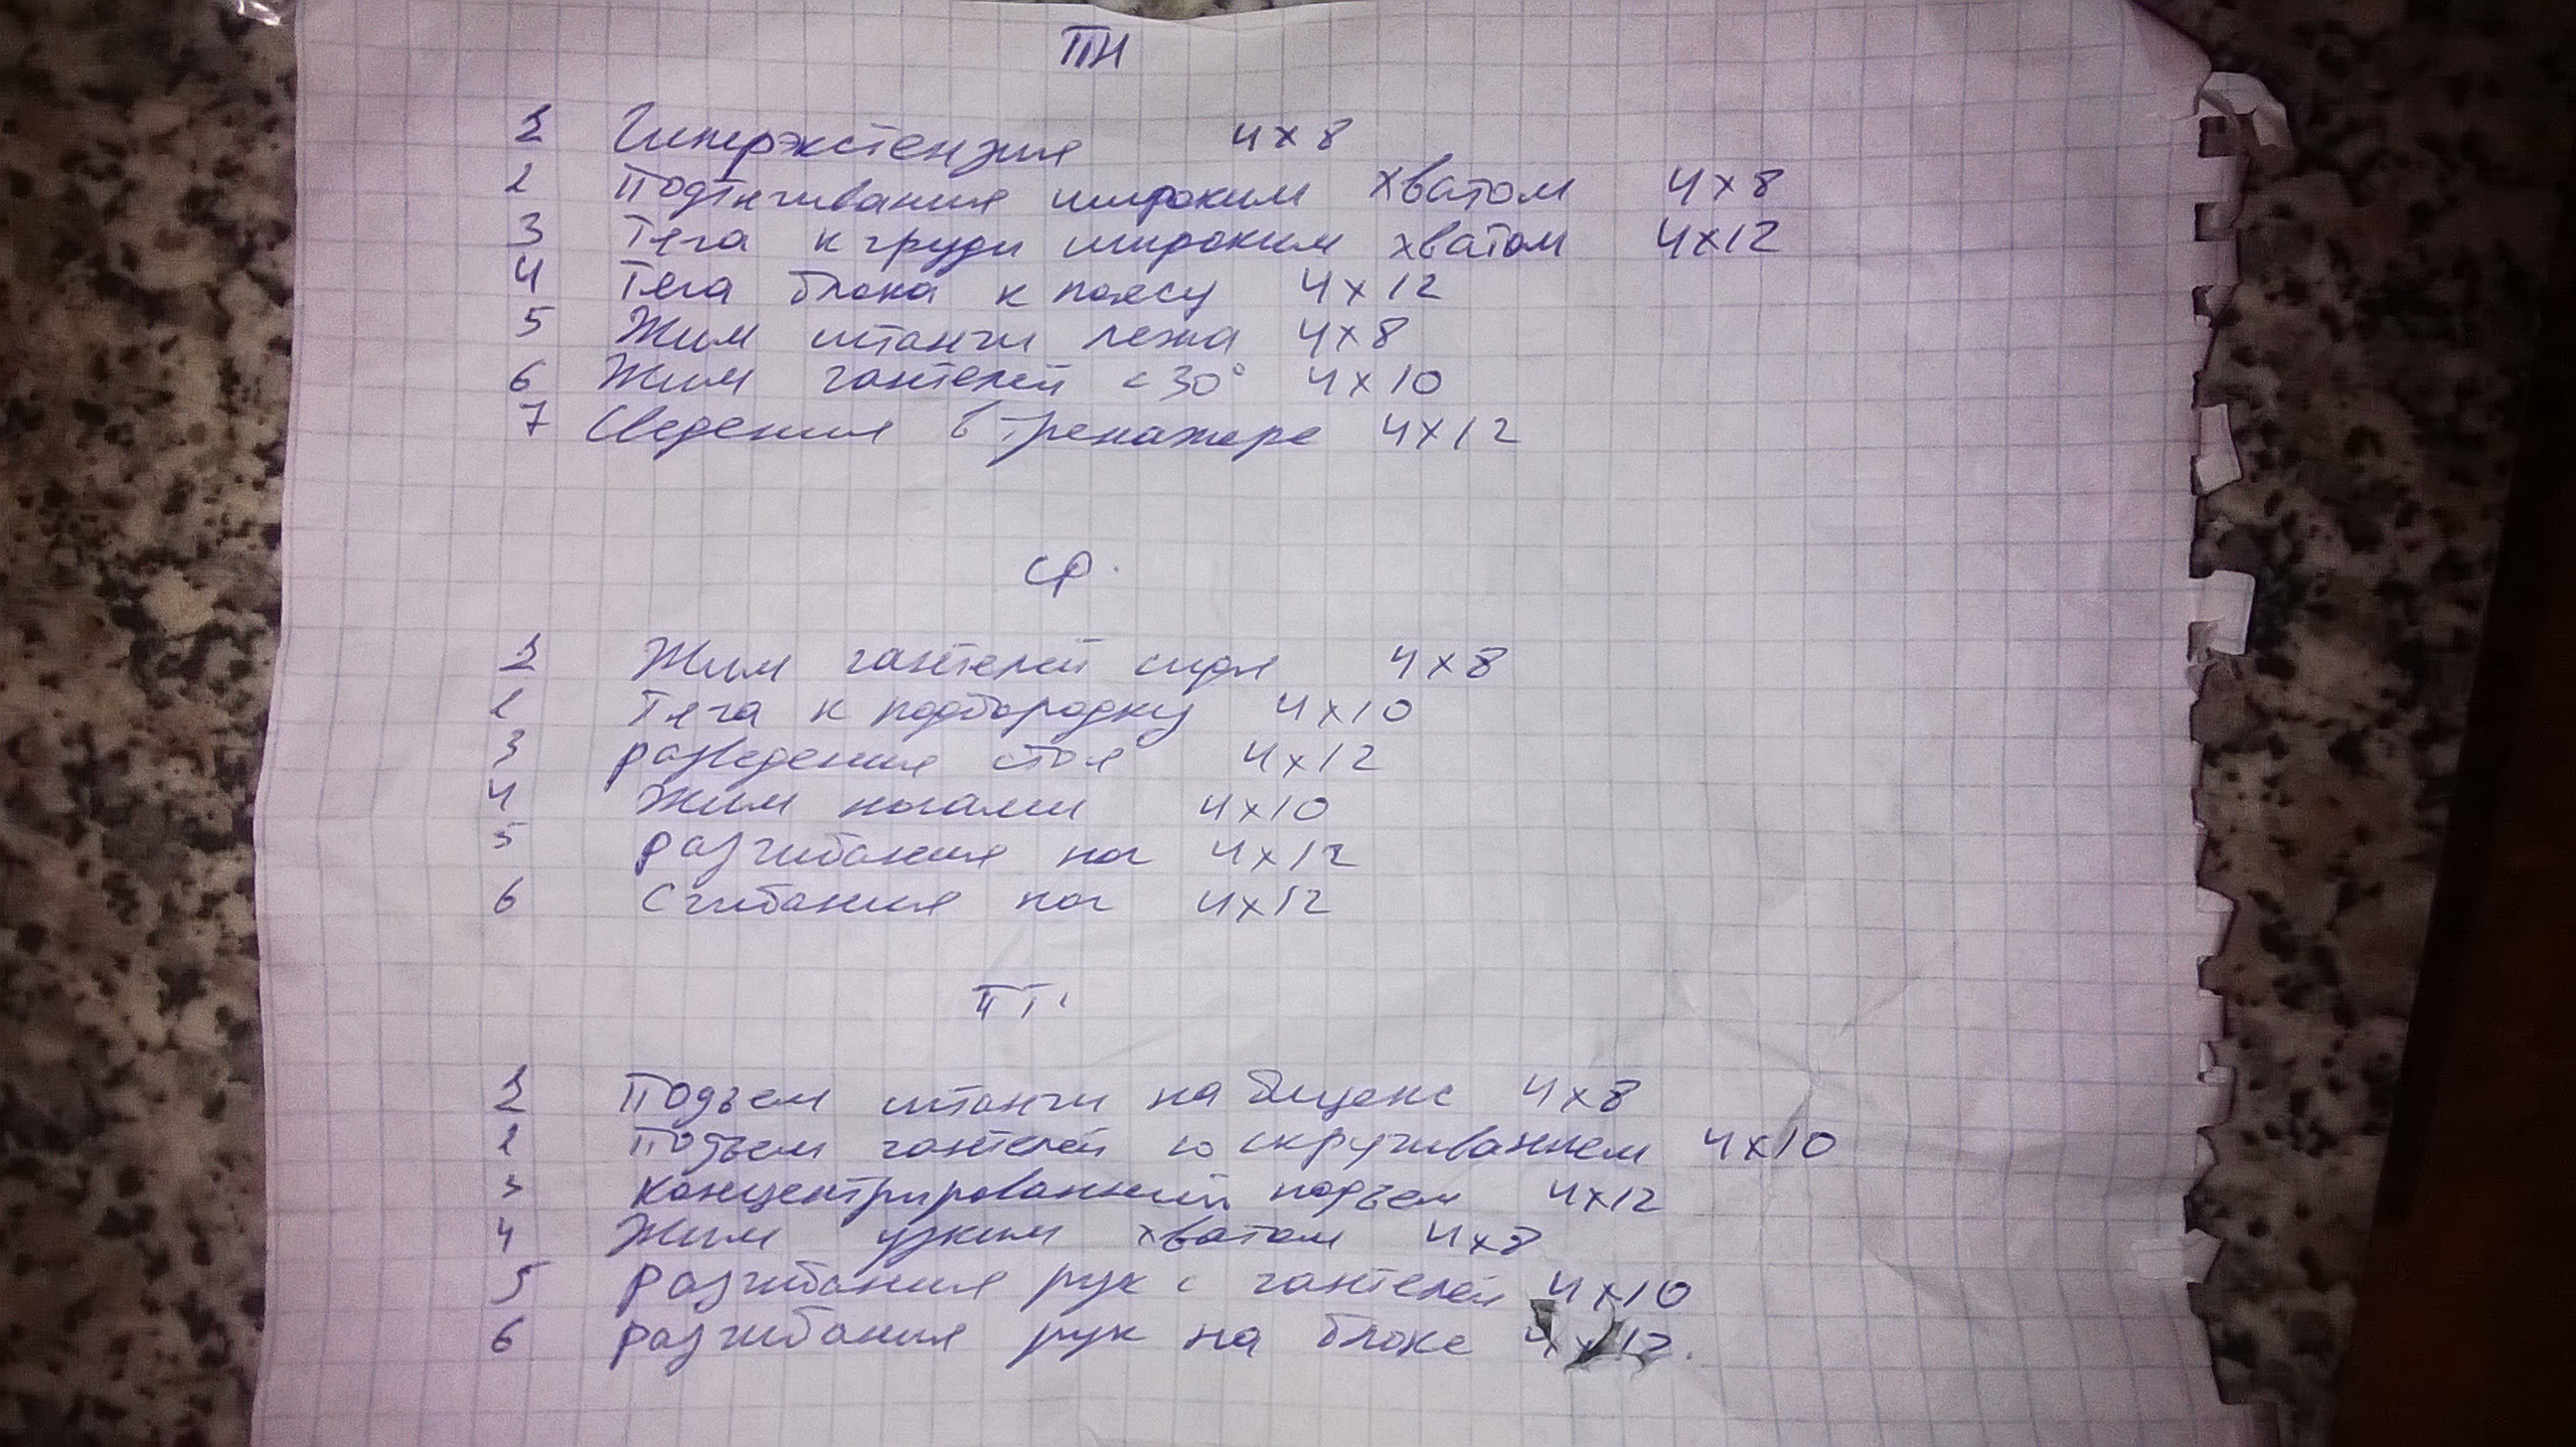 ПН
1 Гиперэкстензия 4х8
2 Подтягивания широким хватом 4х8
3 Тяга к груди широким хватом 4х12
4 Тяга блока к поясу 4х12
5 Жим штанги лежа 4х8
6 Жим гантелей <30° 4х10
7 Сведения в тренажере 4х12
СР.
1 Жим гантелей сидя 4х8
2 Тяга к подбородку 4х10
3 разведения стоя 4х12
4 Жим ногами 4х10
5 разгибания ног 4х12
6 Сгибания ног 4х12
ПТ.
1 Подъем штанги на бицепс 4х8
2 Подъем гантелей со скручиванием 4х10
3 Концентрированный подъем 4х12
4 Жим узким хватом 4х8
5 разгибания рук с гантелей 4х10
6 разгибания рук на блоке 4х12.